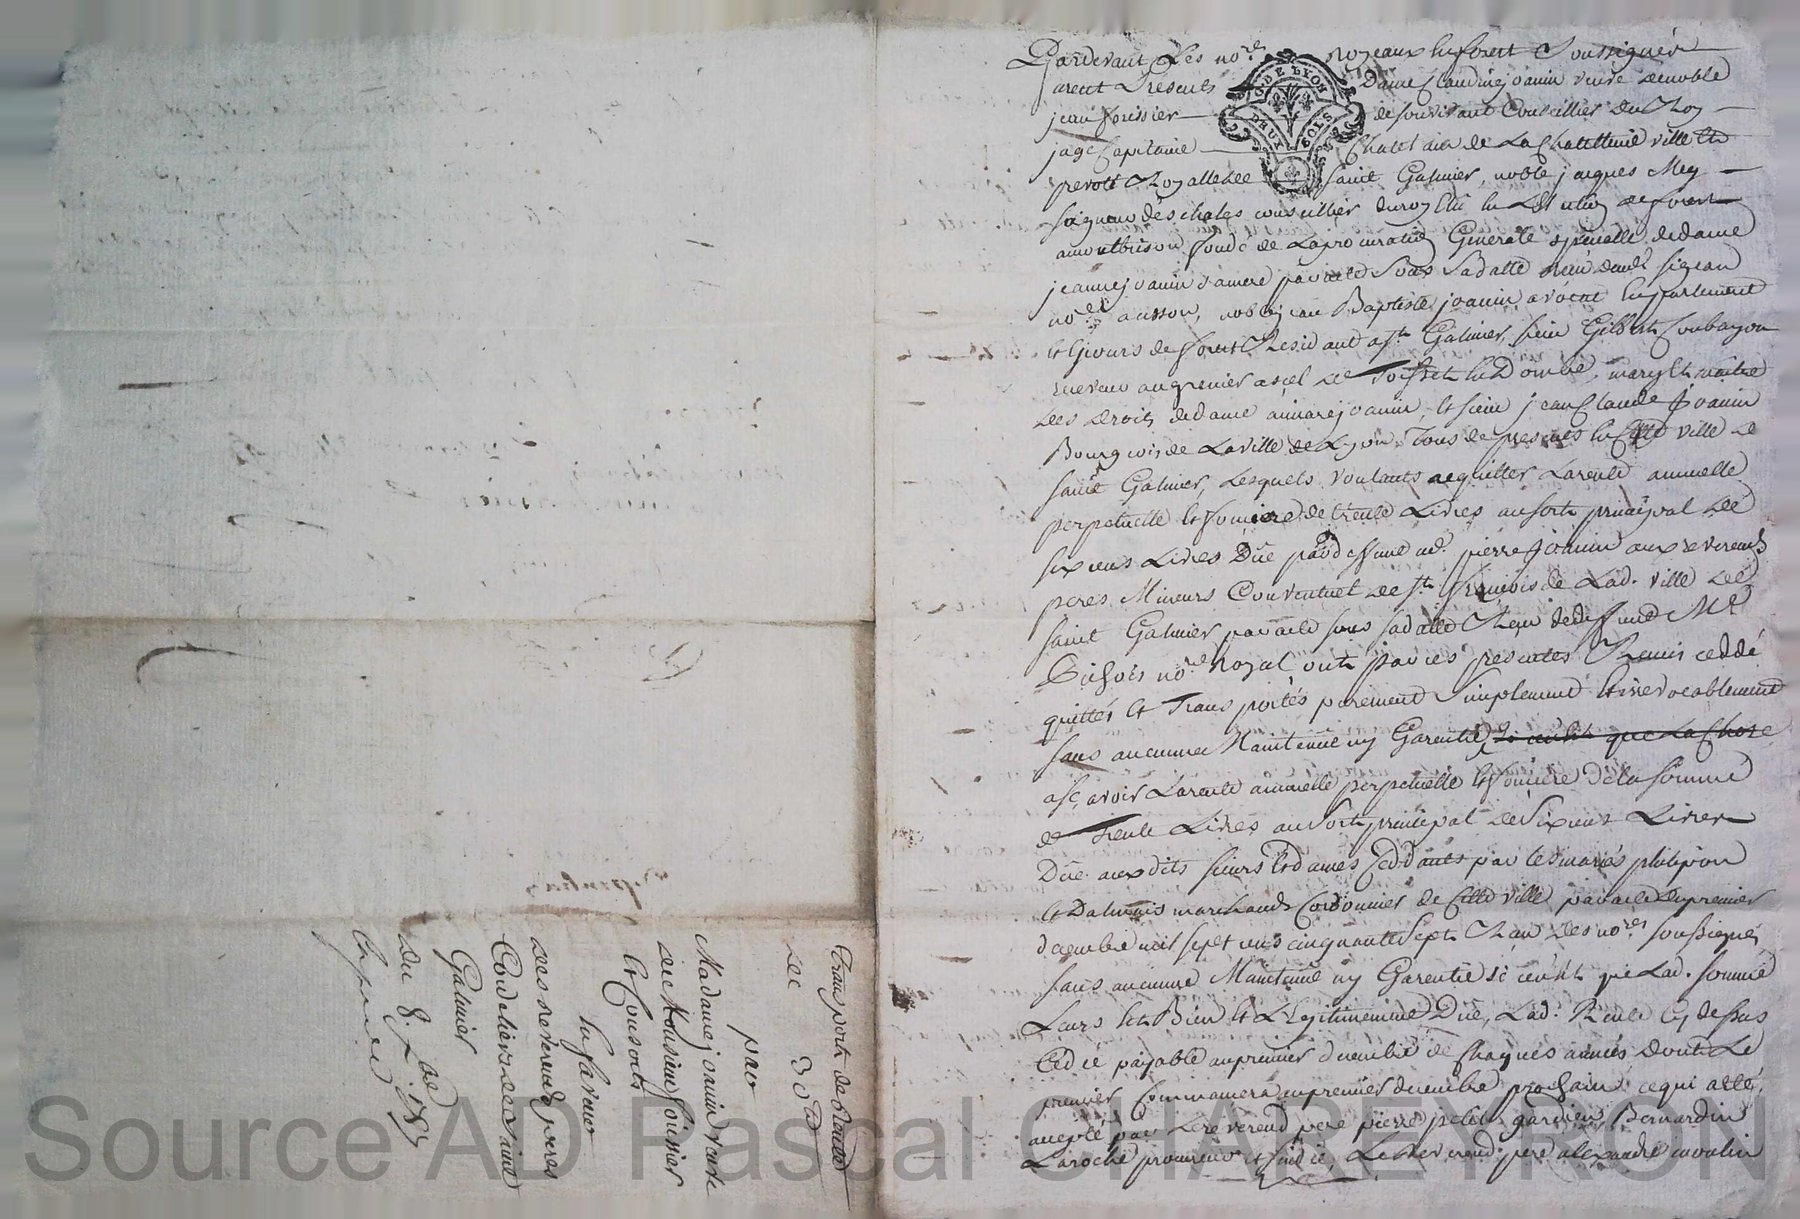 Pardevant Les no.res royaux en forest Soussignés
furent Presents Dame Claudine joanin veuve de noble
jean foussier de fontvivant Conseiller du Roy
juge Capitaine Chatelain de La Chatellenie ville et
prevoté Royalle de saint Galmier, noble jacques Mey
seigneur des chales conseiller du roy en L'Election de forest
a montbrison fondé de La procuration Generale speciale de dame
jeanne joanin sa mere par acte Sous Sa datte
no.re noble jean Baptiste joanin avocat en parlement
et Cours de forest Residant a st. Galmier, sieur Gilbert
receveur au grenier a sel de Toissey en Dombe, mary et maitre
des droits de dame joanin, et sieur jean Claude Joanin
Bourgeois de La ville de Lyon Tous de presents en Cette ville de
saint Galmier, Lesquels voulants acquitter La rente annuelle
perpetuelle et fonciere de trente Livres au sort principal de
six cens Livres Düe par deffunt me. pierre Joanin aux reverends
peres Mineurs Conventuel de st. françois de Lad. ville de
saint Galmier par acte sous sa datte Reçu de deffunt Me
no.re Royal ont par ces presentes Remis ceddé
quittés et Transportés purement Simplement et irrevocablement
sans aucune Maintenue ny Garentie si ce n'est que La Chose
a sçavoir La rente annuelle perpetuelle et fonciere de la somme
de Trente Livres au Sort principal de Six cens Livres
Düe auxdits sieurs et dames Ceddants par les mariés philipon
et Dalmais marchand Cordonnier de Cette ville par acte du premier
decembre mil sept cens cinquante sept Reçu Les no.res soussignés
sans aucune Maintenue ny Garentie si ce n'est que Lad. somme
Leurs est Bien et Legitimement Düe, Lad. Rente Cy dessus
Ceddée payable au premier decembre de Chaques années dont Le
premier Commencera au premier decembre prochain; ce qui a été
accepté par Le reverend pere pierre petit gardien, Bernardin
Laroche procureur et sindic, Le Reverend pere alexandre
Transport de Rente
de 30 tt
par
Madame joanin veuve
de Monsieur foussier
et Consorts
en faveur
des reverends peres
Cordeliers de Saint
Galmier
du 8. Xbre 17
Source AD Pascal CHAREYRON